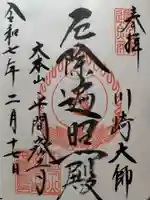 奉拝
川崎大師
厄除遍照殿
大本山平間寺
令和七年二月十七日